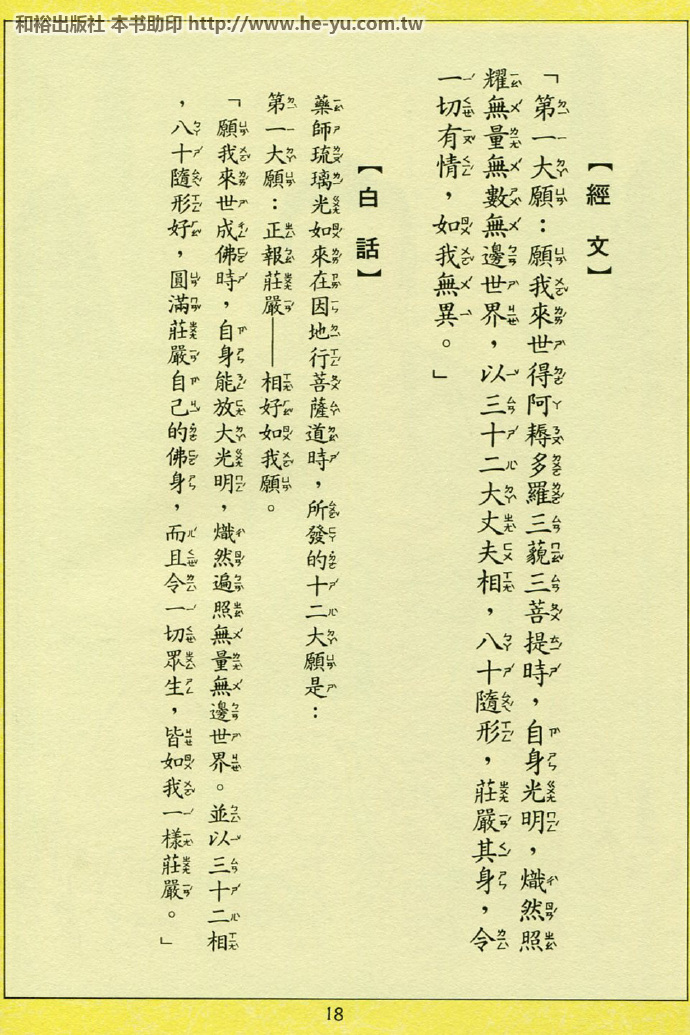 和裕出版社 本书助印 http://www.he-yu.com.tw
【經文】
「第一大願：願我來世得阿耨多羅三藐三菩提時，自身光明，熾然照
耀無量無數無邊世界，以三十二大丈夫相，八十隨形，莊嚴其身，令
一切有情，如我無異。」
【白話】
藥師琉璃光如來在因地行菩薩道時，所發的十二大願是：
第一大願：正報莊嚴——相好如我願。
「願我來世成佛時，自身能放大光明，熾然遍照無量無邊世界。並以三十二相
，八十隨形好，圓滿莊嚴自己的佛身，而且令一切眾生，皆如我一樣莊嚴。」
18